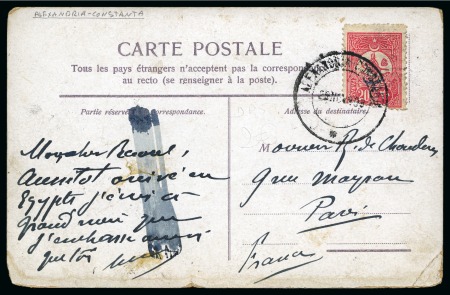 ALEXANDRIA-CONSTANTA
CARTE POSTALE
Tous les pays étrangers n'acceptent pas la correspondance
au recto (se renseigner à la poste).
Partie réservée à la correspondance.
Adresse du destinataire.
ALEXANDRIA
20
Mon cher
Aussitôt arrivé en
Egypte j'écris à
grand mère que
j'embrasse aussi
que toi
Monsieur R. de
9 rue
Paris
France